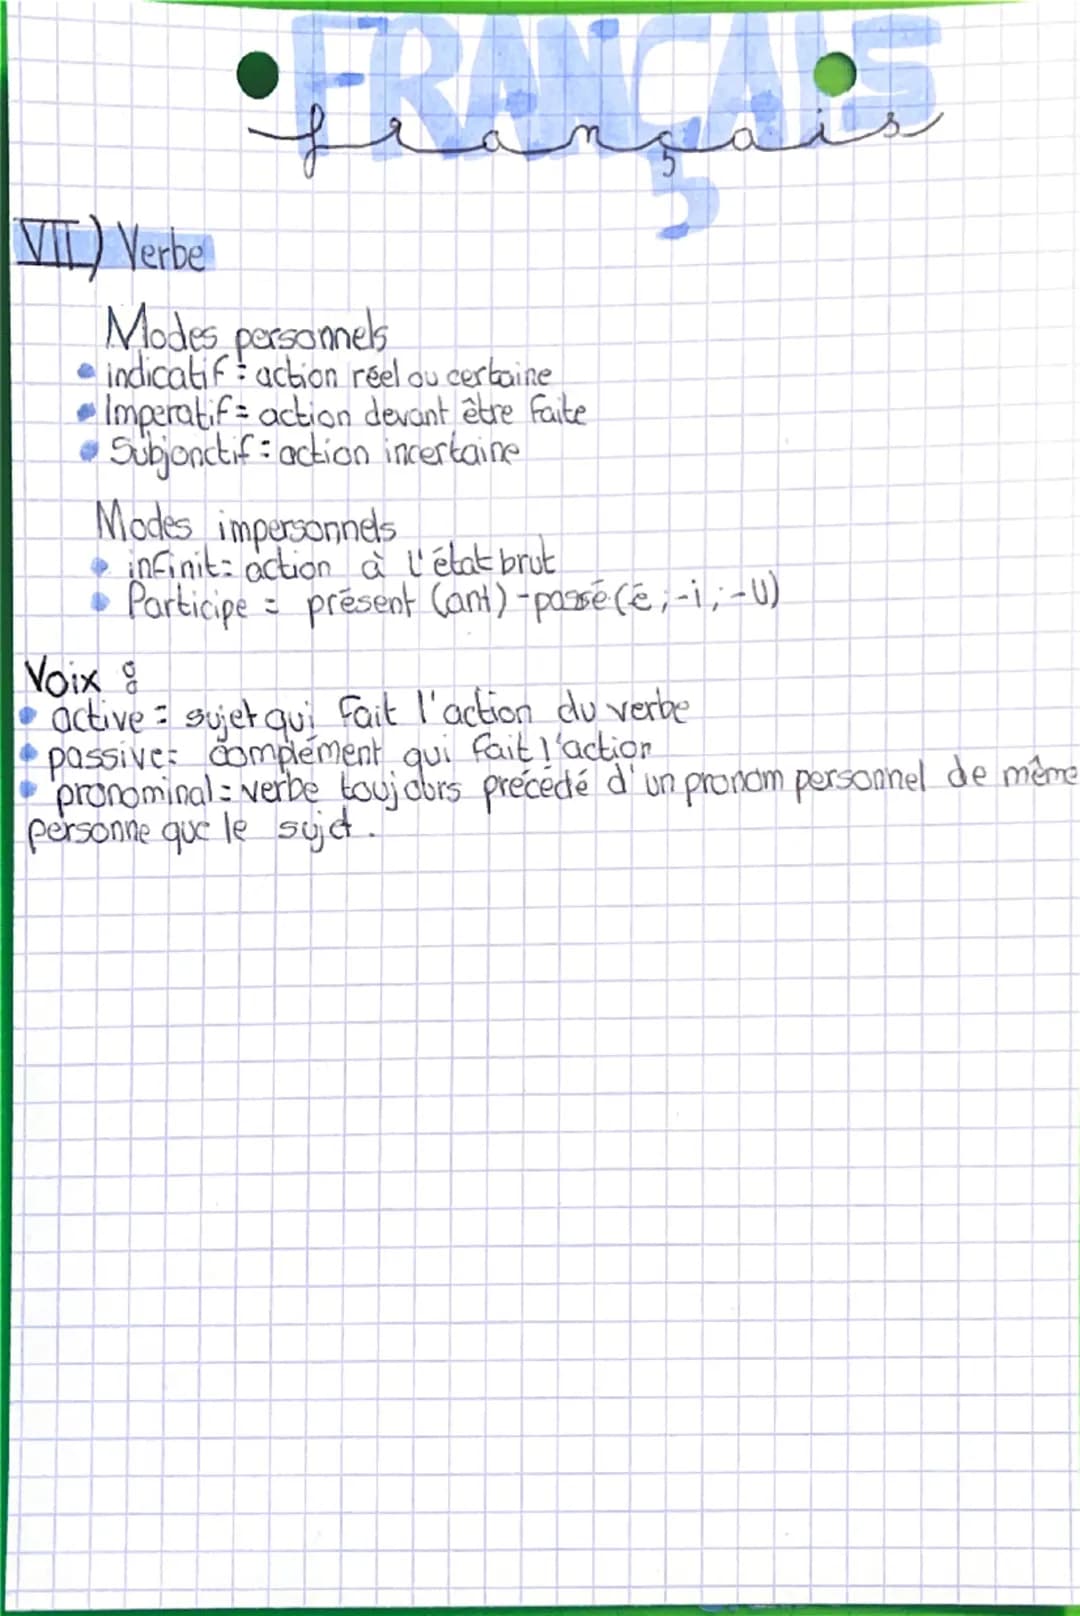 FRANÇAIS
français
VII) Verbe
Modes personnels
indicatif = action réel ou certaine
Imperatif = action devant être faite
Subjonctif = action incertaine
Modes impersonnels
infinit = action à l'état brut
Participe = présent (ant) - passé (é ; -i ; -u)
Voix :
active = sujet qui fait l'action du verbe
passive = complément qui fait l'action
pronominal = verbe toujours précédé d'un pronom personnel de même
personne que le sujet.